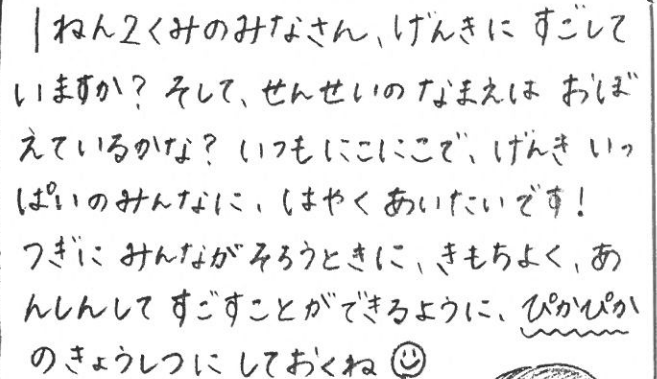 1ねん2くみのみなさん、げんきに すごして
いますか? そして、せんせいの なまえは おぼ
えているかな? いつもにこにこで、げんき いっ
ぱいのみんなに、はやく あいたいです!
つぎに みんながそろうときに、きもちよく、あ
んしんして すごすことができるように、ぴかぴか
のきょうしつに しておくね